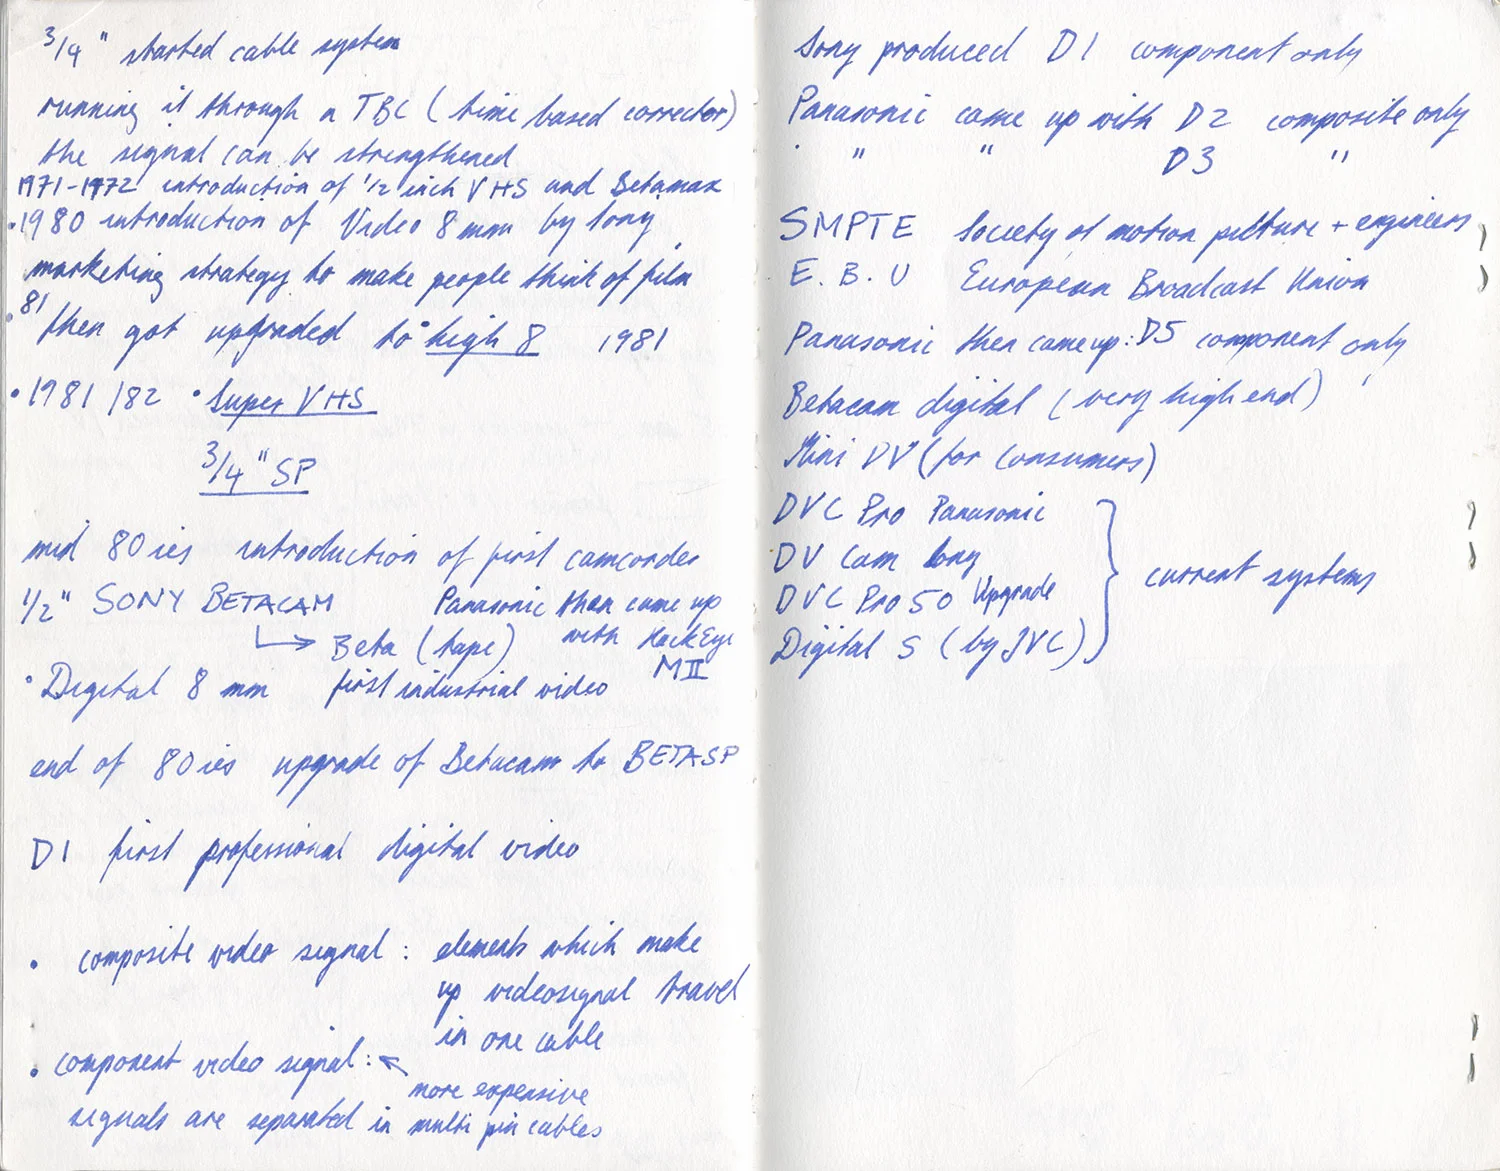 3/4" started cable system
running it through a TBC (time based corrector)
the signal can be strengthened
1971-1972 introduction of 1/2 inch VHS and Betamax
• 1980 introduction of Video 8 mm by Sony,
marketing strategy to make people think of film
• 81 then got upgraded to high 8 1981
• 1981/82 • Super VHS
3/4" SP
mid 80ies introduction of first camcorder
1/2" SONY BETACAM
→ Beta (tape)
Panasonic then came up
with
MII
• Digital 8 mm first industrial video
end of 80ies upgrade of Betacam to BETASP
D1 first professional digital video
• composite video signal : elements which make
up videosignal travel
in one cable
• component video signal : ←
more expensive
signals are separated in multi pin cables
Sony produced D1 component only
Panasonic came up with D2 composite only
" " " D3 "
SMPTE Society of motion picture + engineers
E.B.U European Broadcast Union
Panasonic then came up: D5 component only
Betacam digital (very high end)
Mini DV (for consumers)
DVC Pro Panasonic
DV Cam Sony
DVC Pro 50 Upgrade
Digital S (by JVC)
current systems